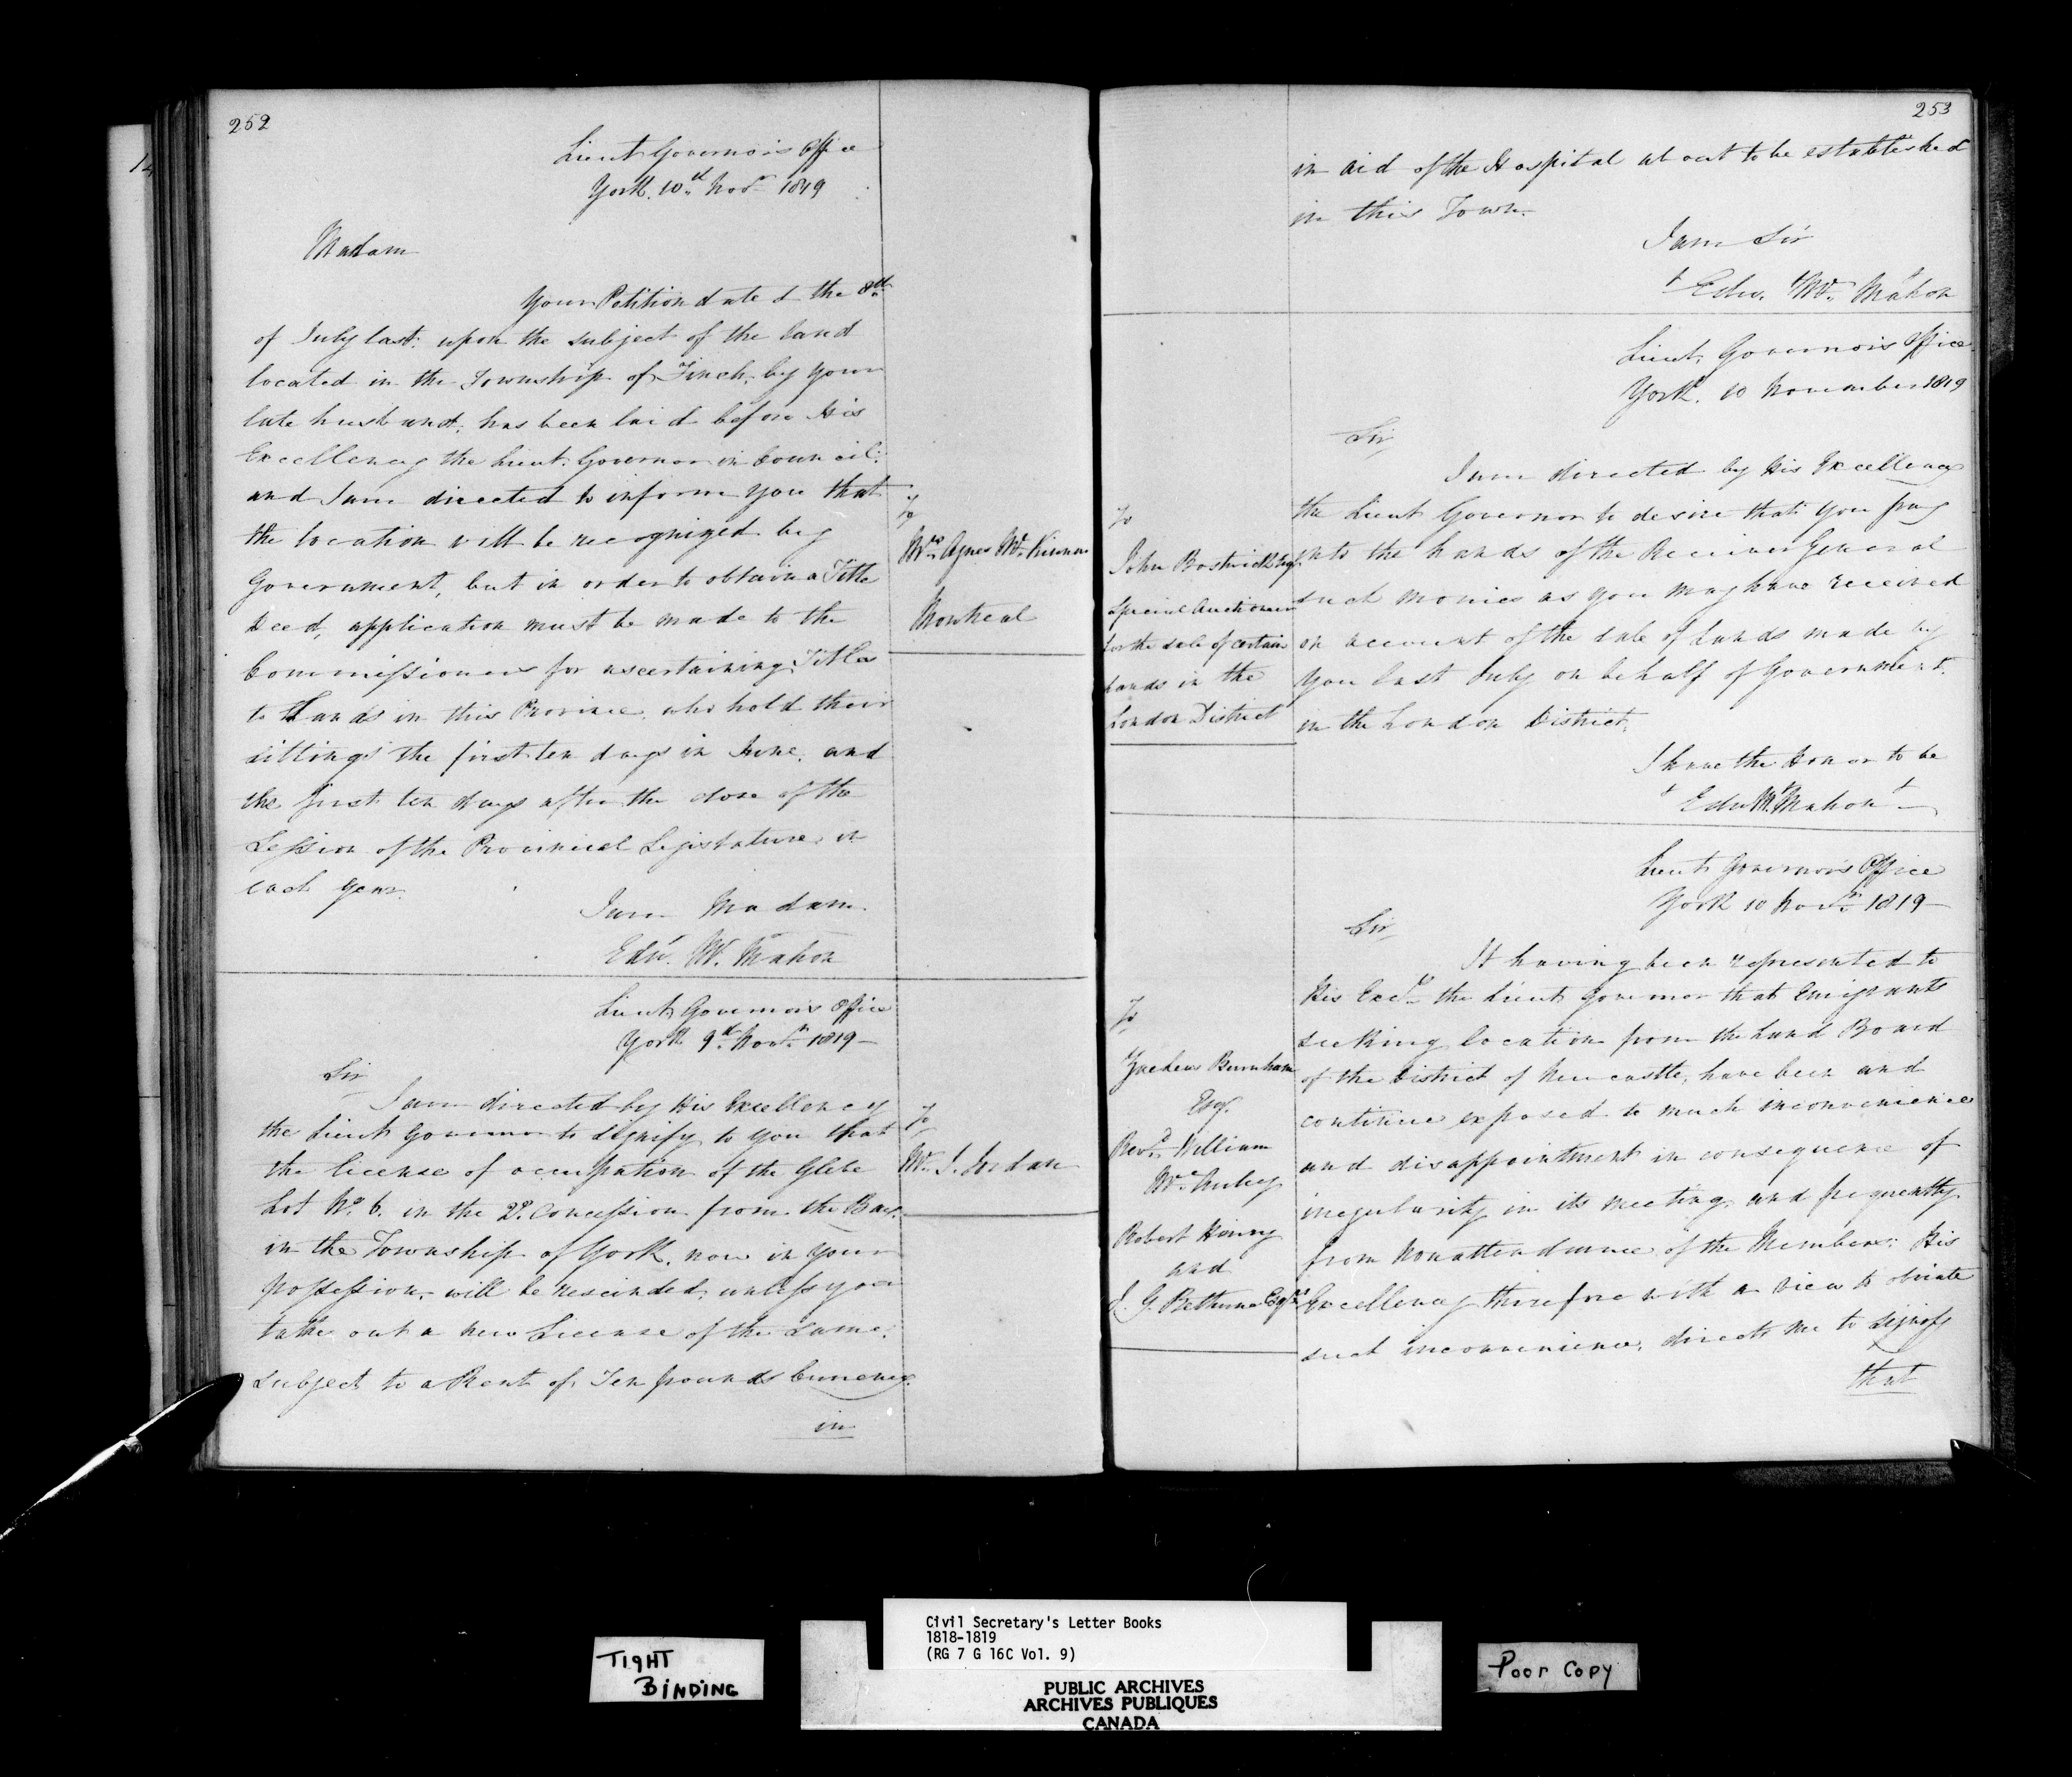 252
Lieut Governor's Office
York. 10th Novr 1819
Madam
Your Petition dated the 8th
of July last: upon the subject of the land
located in the Township of Finch, by your
late husband, has been laid before His
Excellency the Lieut: Governor in Council:
and I am directed to inform you that
the location will be recognized by
Government, but in order to obtain a Title
Deed, application must be made to the
Commissioners for ascertaining Titles
to Lands in this Province, who hold their
sittings the first ten days in June, and
the first ten days after the close of the
Session of the Provincial Legislature in
each year.
I am Madam.
Edwd. Mc. Mahon
To
Mrs Agnes Mc
Montreal
Lieut Governor's Office
York 9th Novr 1819—
Sir
I am directed by His Excellency
the Lieut Governor to signify to you that
the license of occupation of the Glebe
Lot No. 6. in the 2d. Concession from the Bay.
in the Township of York, now in your
possession, will be rescinded, unless you
take out a new License of the same,
subject to a Rent of Ten pounds Currency.
in
To
Mr. J. Jordan
253
in aid of the Hospital about to be established
in this Town.
I am Sir
Edw. Mc. Mahon
Lieut, Governor's Office
York. 10 November 1819
Sir,
I am directed by His Excellency
the Lieut Governor to desire that you pay
into the hands of the Receiver General
such monies as you may have received
on account of the sale of Lands made by
you last July on behalf of Government.
in the London District.
I have the Honor to be
Edw Mc. Mahon
To
John Bostwick Esqr
Special Auctioneer
for the sale of certain
lands in the
London District
Lieut Governor's Office
York 10 Novr 1819—
Sir,
It having been represented to
His Excy the Lieut Governor that Emigrants
seeking location from the Land Board
of the District of Newcastle, have been and
continue exposed to much inconvenience
and disappointment in consequence of
irregularity in its meeting, and frequently
from non attendance of the Members: His
Excellency therefore with a view to obviate
such inconvenience, directs me to signify
that
To
Zacheus Burnham
Esqr.
Revd. William
Mc. Auley
Robert Henry
and
J. G. Bethune Esqrs
Civil Secretary's Letter Books
1818-1819
(RG 7 G 16C Vol. 9)
PUBLIC ARCHIVES
ARCHIVES PUBLIQUES
CANADA
TIGHT
BINDING
Poor Copy